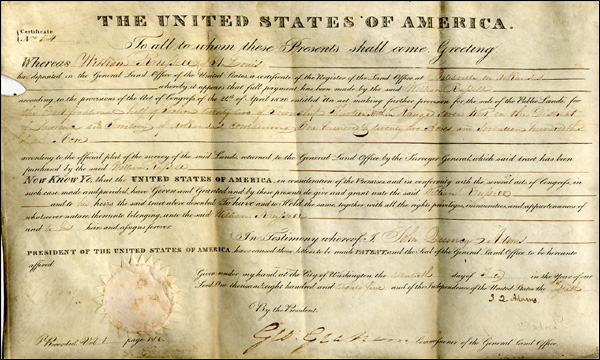 THE UNITED STATES OF AMERICA.
Certificate
No 54
To all to whom these Presents shall come, Greeting
Whereas William Russell of St Louis
has deposited in the General Land Office of the United States, a certificate of the Register of the Land Office at Batesville in Arkansas
whereby it appears that full payment has been made by the said William Russell
according to the provisions of the Act of Congress of the 24th of April 1820 entitled An act making further provision for the sale of the Public Lands, for
the half of Section twenty two of Township in the District
of Lawrence and Territory of Arkansas containing and seventy two Acres and hundredths
of an Acre
according to the official plat of the survey of the said Lands, returned to the General Land Office by the Surveyor General, which said tract has been
purchased by the said William Russell
Now Know Ye, that the UNITED STATES OF AMERICA, in consideration of the Premises, and in conformity with the several acts of Congress, in
such case made and provided, have Given and Granted and by these presents do give and grant unto the said William Russell
and to his heirs the said tract above described To have and to Hold the same, together with all the rights, privileges, immunities, and appurtenances of
whatsoever nature, thereunto belonging, unto the said William Russell
and to his heirs and assigns forever.
In Testimony whereof I, John Quincy Adams
PRESIDENT OF THE UNITED STATES OF AMERICA, have caused these letters to be made PATENT, and the Seal of the General Land Office to be hereunto
affixed
Given under my hand, at the City of Washington, the day of in the Year of our
Lord One thousand eight hundred and twenty five and of the Independence of the United States the
J. Q. Adams
By the President.
Geo Graham Commissioner of the General Land Office.
Recorded, Vol 1 page